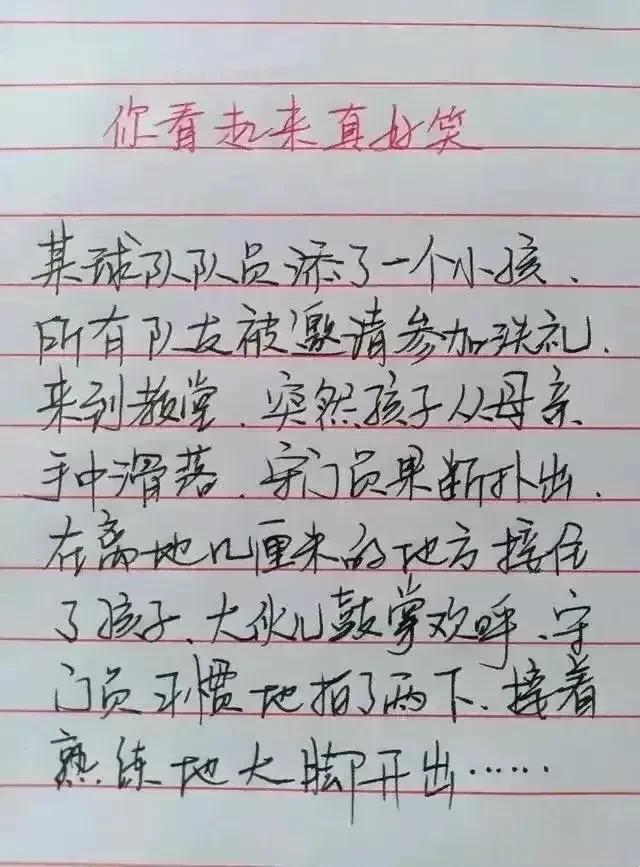 你看起来真好笑
某球队队员添了一个小孩、
所有队友被邀请参加洗礼、
来到教堂、突然孩子从母亲
手中滑落、守门员果断扑出、
在离地几厘米的地方接住
了孩子、大伙儿鼓掌欢呼、守
门员习惯地拍了两下、接着
熟练地大脚开出……